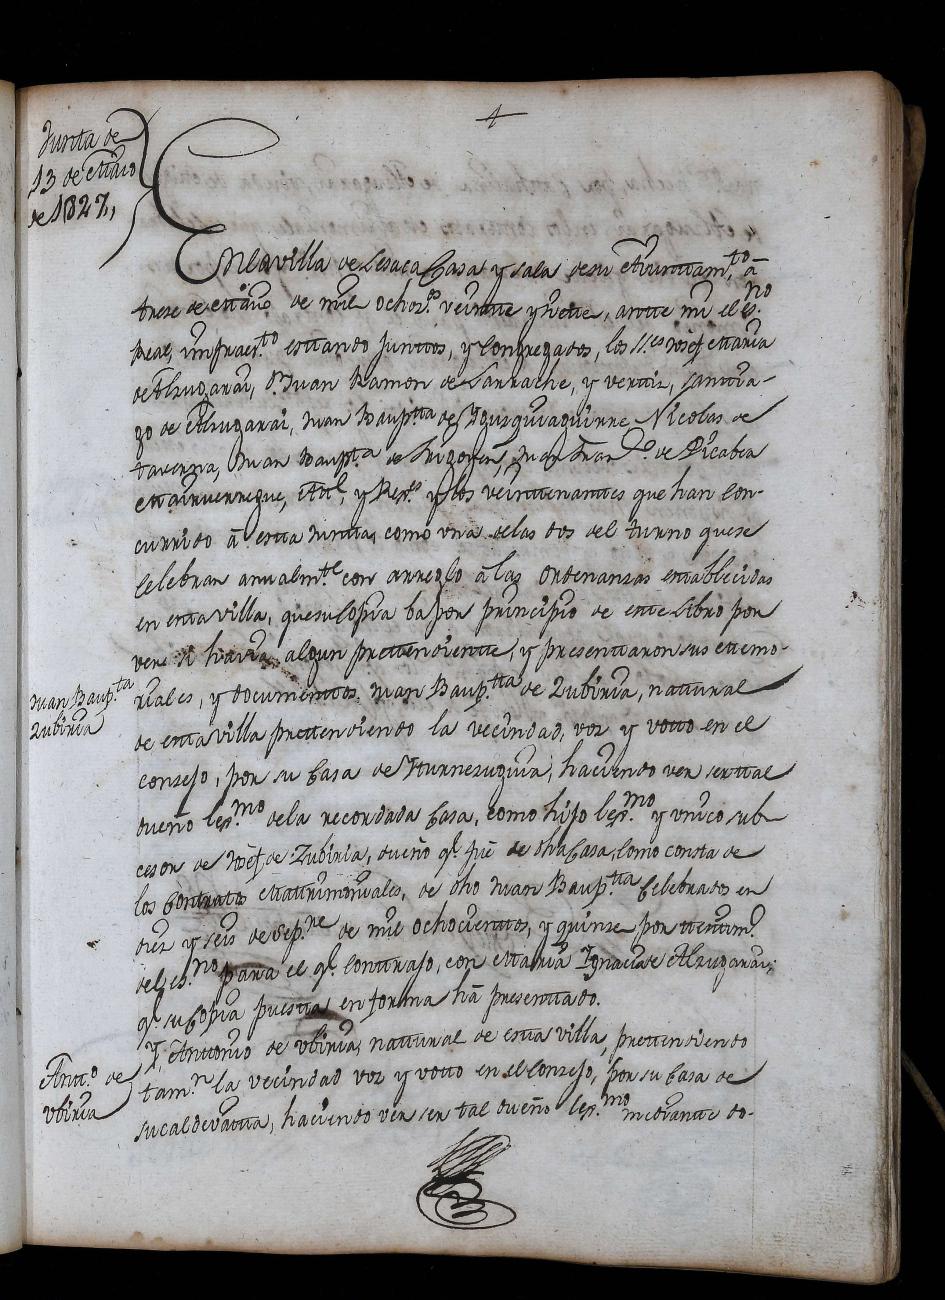 4
Junta de
13 de Enero
de 1827,
En la villa de Lesaca Casa y sala de su Aiuntam.to à
trese de Enero de mil ochoz.s veinte y siete, ante mi el es.no
Real, infraes.to estando juntos, y congregados, los SS.es Josef Maria
de Alzugarai, D.n Juan Ramon de Larrache, y vertiz, Santia-
go de Alzugarai, Juan Baup.tta de Yrusquiaguirre Nicolas de
taverna, Juan Baup.ta de Irigoyen, Juan Fran.co de Picabea
Al.e, y Reg.s y los veintenantes que han con-
currido à esta Junta, como una de las dos del turno que se
Celebran anualm.te con arreglo à las ordenanzas establecidas
en esta villa, que su Copia ba por principio de este Libro por
ver si havia algun prettendiente, y presentaron sus Memo-
riales, y documentos Juan Baup.tta de Zubiria, natural
de esta villa prettendiendo la vecindad, voz y votto en el
consejo, por su Casa de Yturnesuguia, haciendo ver ser tal
dueño leg.mo de la recordada Casa, como hijo leg.mo y unico sub-
cesor de Josef de Zubiria, dueño q.e fue de dha Casa, como consta de
los Contratos Matrimoniales, de dho Juan Baup.tta Celebrados en
diez y seis de Sep.re de mil ochocientos, y quinse por testim.o
del es.no para el q.e contrajo, con Maria Ignacia de Alzugarai;
q.e su Copia puesta en forma hà presentado.
Y, Antonio de Ubiria, natural de esta villa, prettendiendo
tam.n la vecindad voz y votto en el Consejo, por su Casa de
sucaldevatta, haciendo ver ser tal dueño leg.mo mediante do-
Juan Baup.ta
Zubiria
Ant.o de
Ubiria